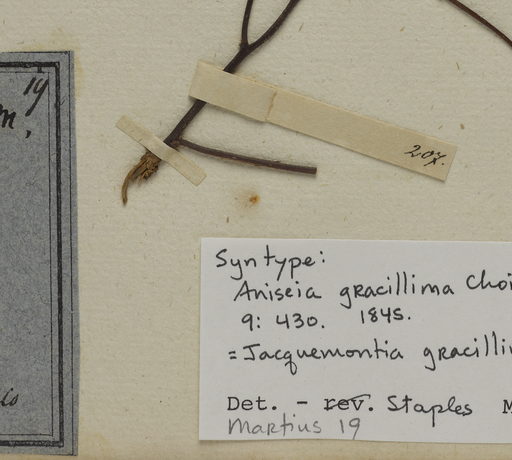 19
m.
207.
Syntype:
Aniseia gracillima Choi
9: 430. 1845.
= Jacquemontia gracillim
Det. - rev. Staples M
Martius 19